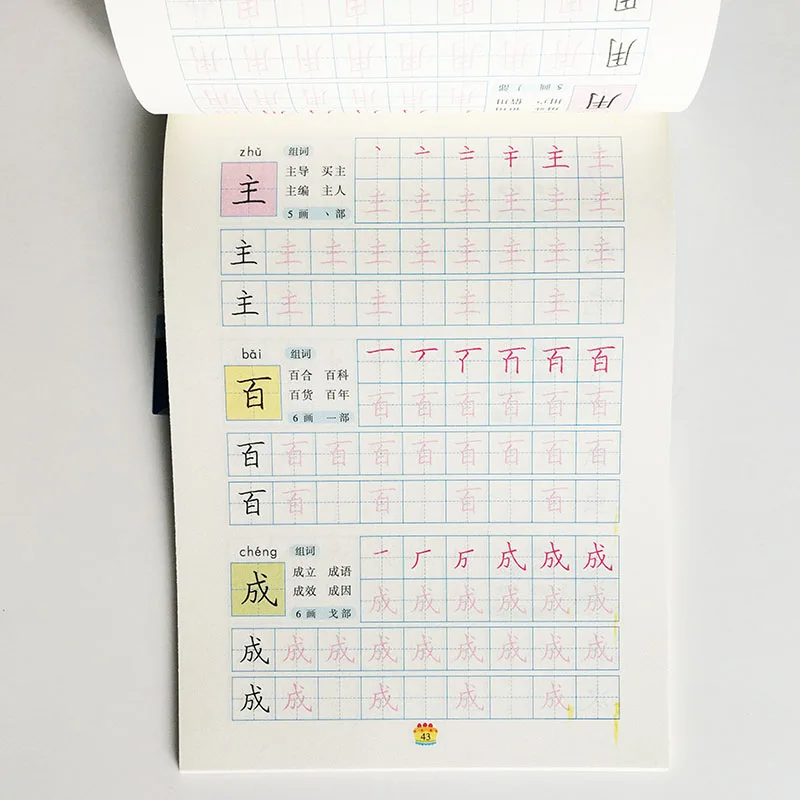 用
用
用
5画 丿部
zhǔ 组词
主 主导 买主
主编 主人
5画 丶部
丶 亠 主 主
主 主 主 主 主 主
主 主 主 主 主 主 主 主 主
主 主 主 主 主
bǎi 组词
百 百合 百科
百货 百年
6画 一部
一 丆 百
百 百 百 百 百 百
百 百 百 百 百 百 百 百 百
百 百 百 百 百
chéng 组词
成 成立 成语
成效 成因
6画 戈部
一 厂 成 成
成 成 成 成 成 成
成 成 成 成 成 成 成 成 成
成 成 成 成 成
43